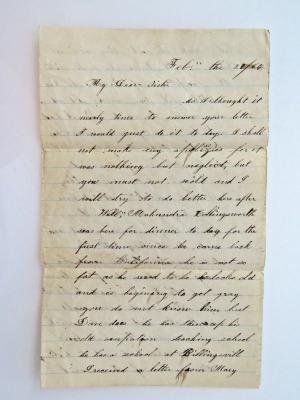 Feb. the
My Dear Sister
As I thought it
nearly time to answer your letter
I would just do it to day. I shall
not make any apologies for it
was nothing but neglect, but
you must not scold and I
will try to do better here after
Will Illingsworth
was here for dinner to day for the
first time since he came back
from California he is not so
fat as he used to be looks old
and is begining to get gray
you do not know him but
Dave does he has
old teaching school
he has a school at Billingsvill
I received a letter from Mary